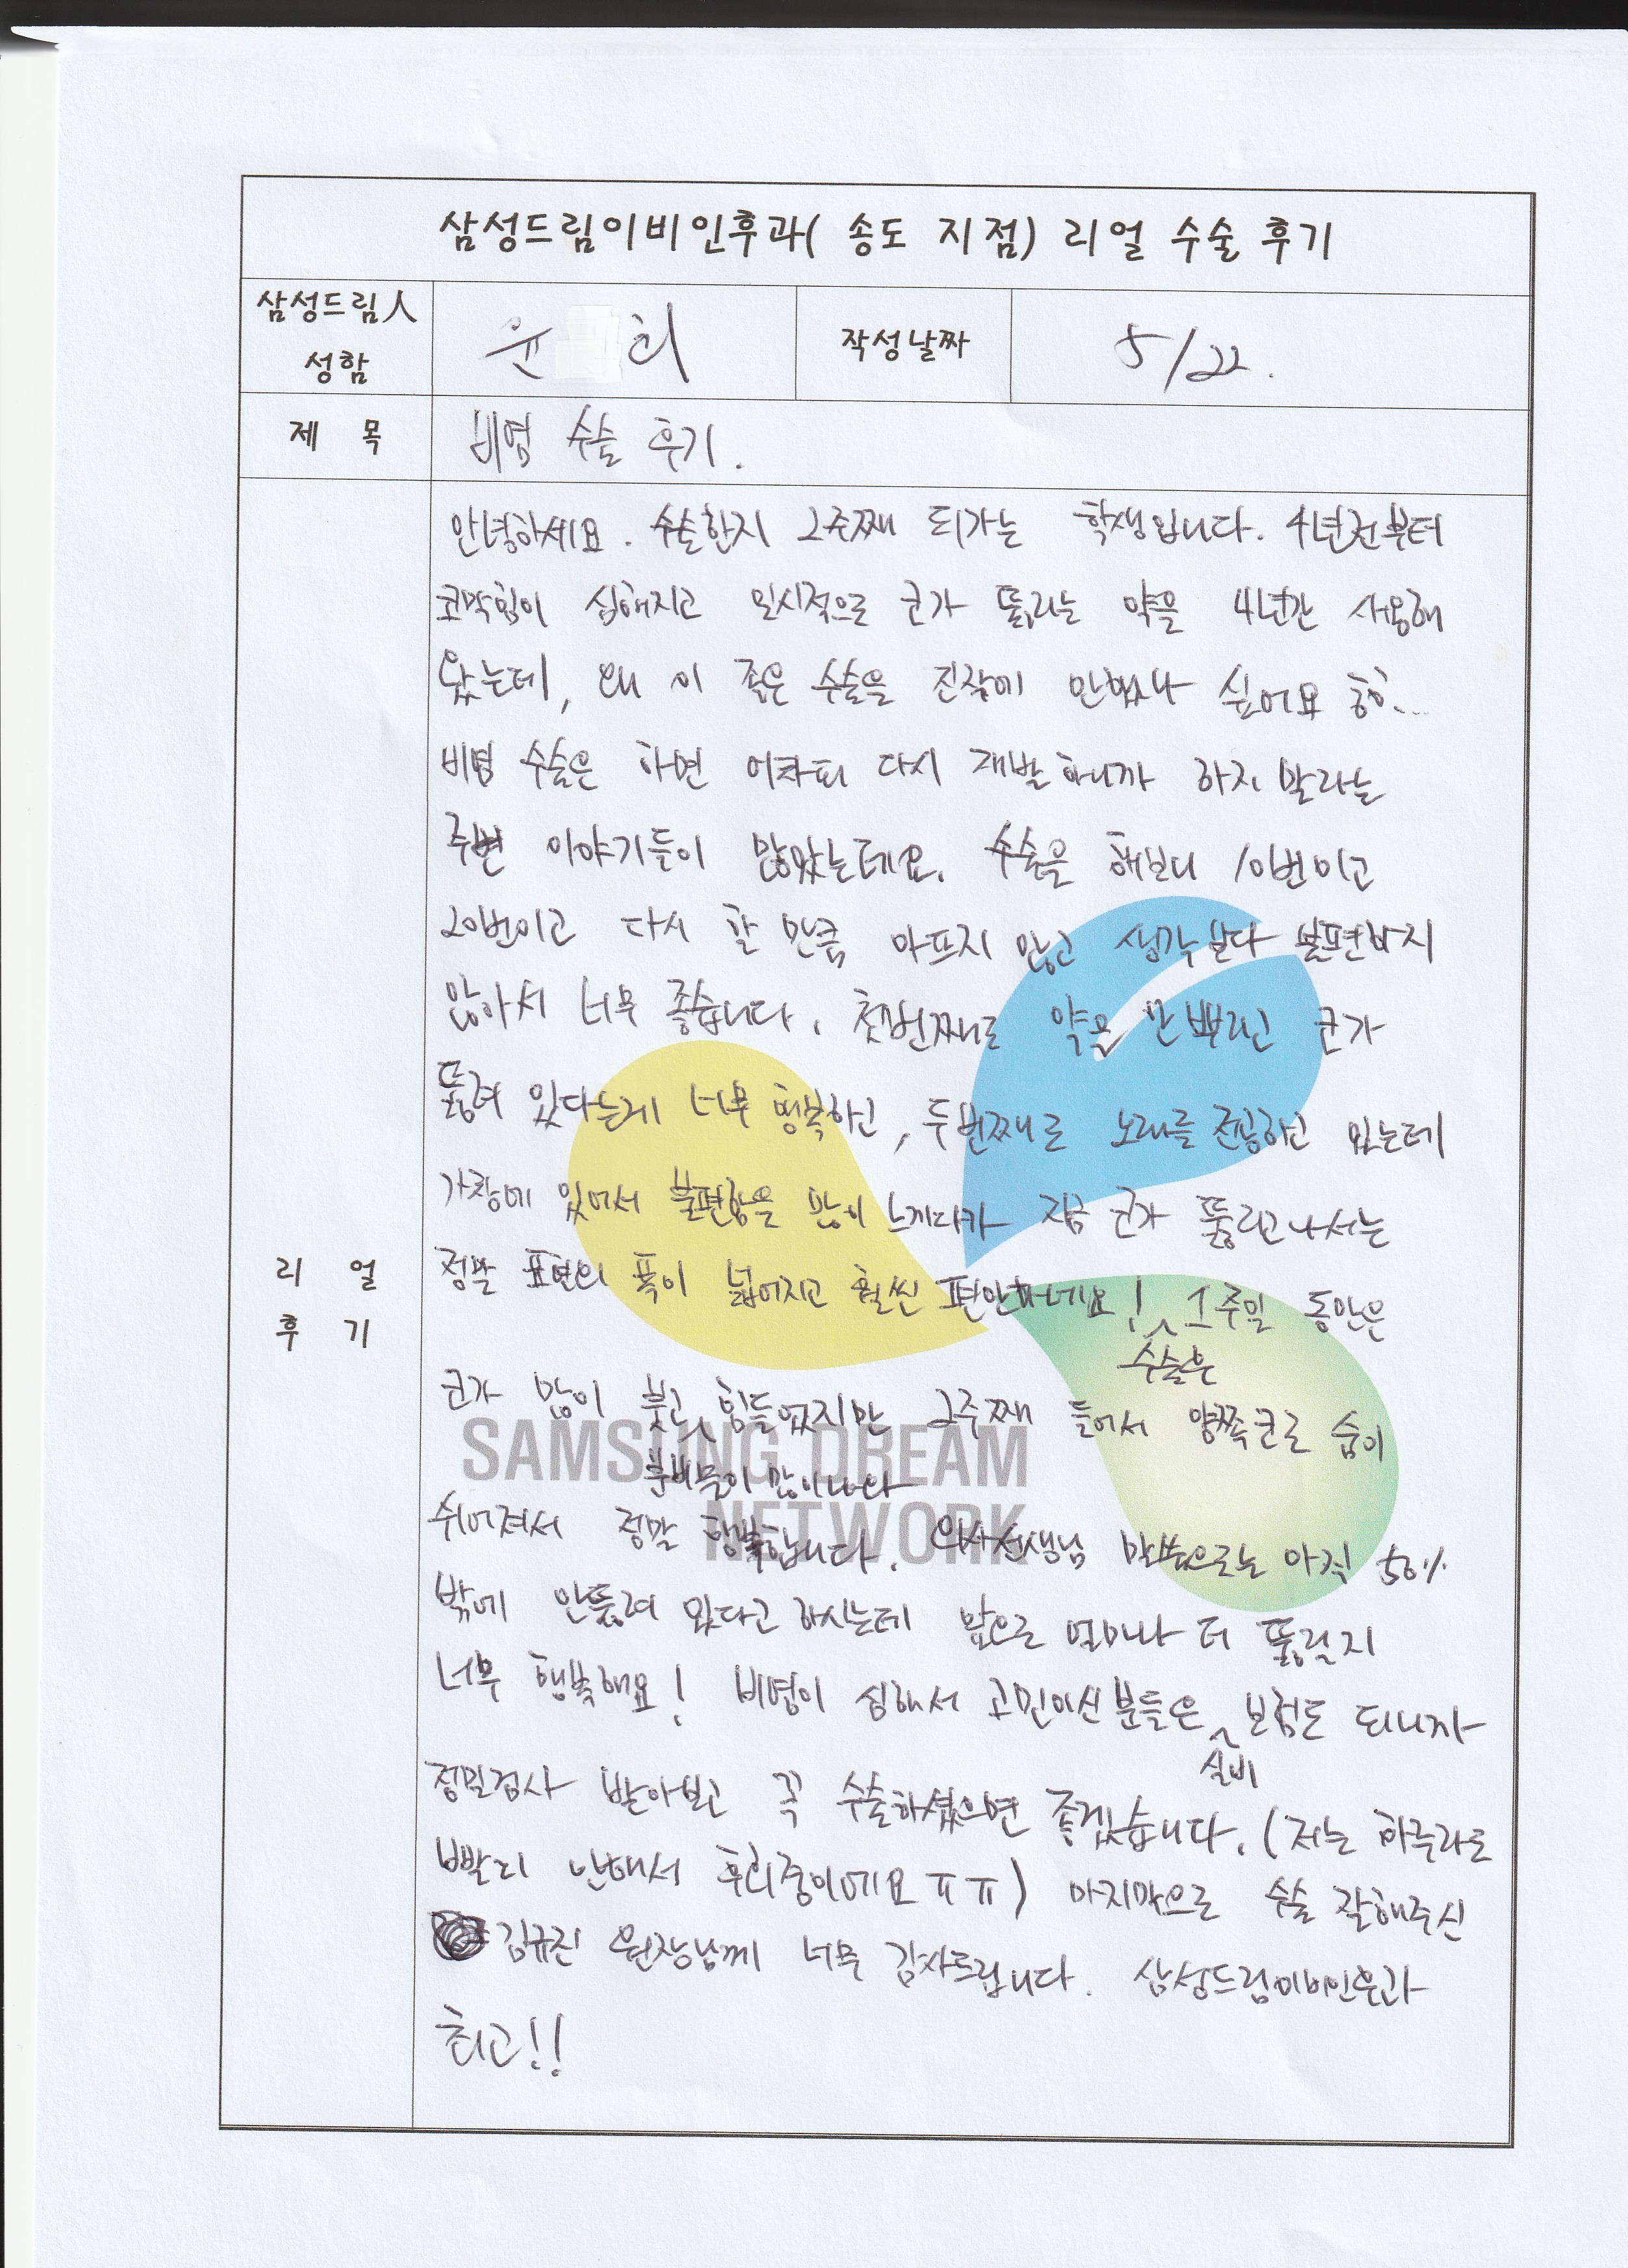 삼성드림이비인후과( 송도 지점) 리얼 수술 후기
삼성드림人
성함
윤 희
작성날짜
5/22.
제 목
비염 수술 후기.
리 얼
후 기
안녕하세요. 수술한지 2주째 되가는 학생입니다. 4년전부터
코막힘이 심해지고 일시적으로 코가 뚫리는 약을 4년간 사용해
왔는데, 왜 이 좋은 수술을 진작에 안했나 싶어요 흡...
비염 수술은 하면 어차피 다시 재발하니까 하지 말라는
주변 이야기들이 많았는데요. 수술을 해보니 10번이고
20번이고 다시 할 만큼 아프지 않고 생각보다 불편하지
않아서 너무 좋습니다. 첫번째로 약을 안 뿌리고 코가
뚫려 있다는게 너무 행복하고, 두번째로 노래를 전공하고 있는데
가창에 있어서 불편함을 많이 느끼다가 지금 코가 뚫리고나서는
정말 표현의 폭이 넓어지고 훨씬 편안하네요! 1주일 동안은
수술후
코가 많이 붓고 힘들었지만 2주째 들어서 양쪽코로 숨이
분비물이 많이나와
SAMSUNG DREAM
NETWORK
쉬어져서 정말 행복합니다. 의사선생님 말씀으로는 아직 50%
밖에 안뚫려 있다고 하시는데 앞으로 얼마나 더 뚫릴지
너무 행복해요! 비염이 심해서 고민이신분들은 보험도 되니까
실비
정밀검사 받아보고 꼭 수술하셨으면 좋겠습니다. (저는 하루라도
빨리 안해서 후회중이에요ㅠㅠ) 마지막으로 수술 잘해주신
김규진 원장님께 너무 감사드립니다. 삼성드림이비인후과
최고!!